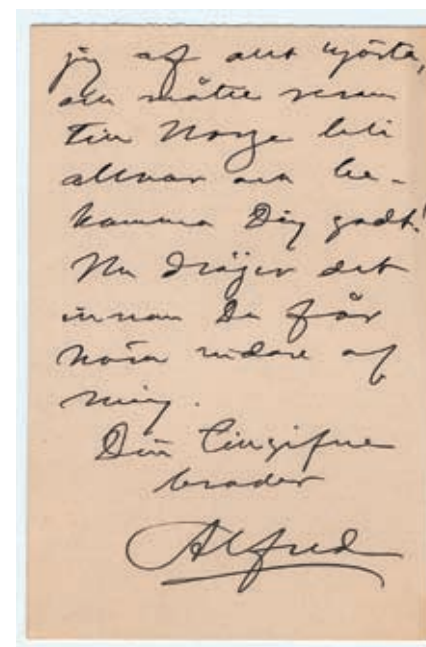 jag af allt hjärta,
och måtte resan
till Norge bli
allvar och be-
komma Dig godt!
Nu dröjer det
innan Du får
höra vidare af
mig.
Din tillgifne
broder
Alfred